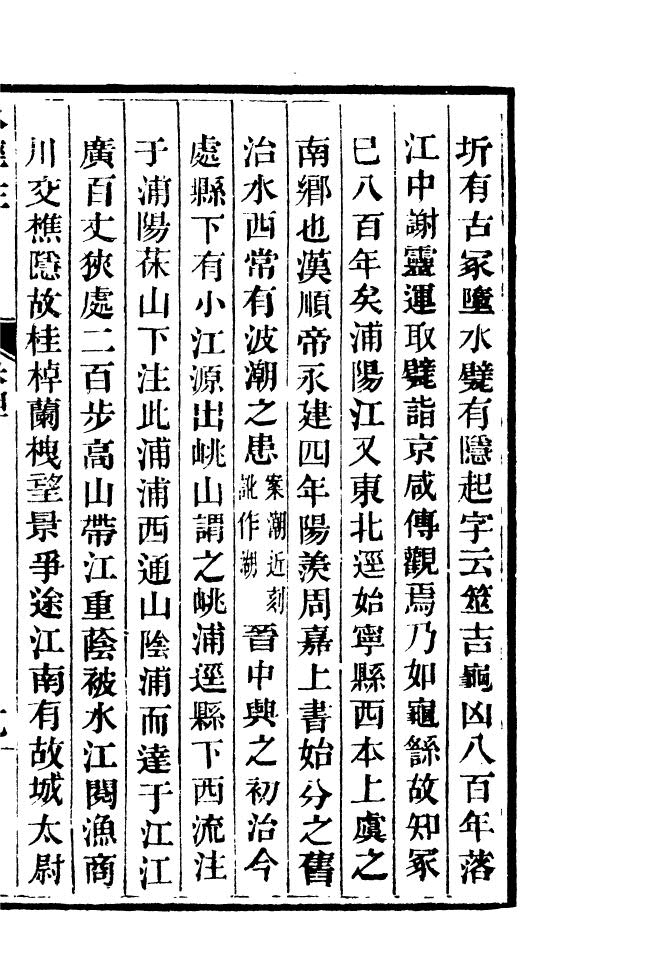 圻有古冢墮水甓有隱起字云筮吉龜凶八百年落
江中謝靈運取甓詣京咸傳觀焉乃如龜繇故知冢
已八百年矣浦陽江又東北逕始寧縣西本上虞之
南鄉也漢順帝永建四年陽羨周嘉上書始分之舊
治水西常有波潮之患案潮近刻訛作湖晉中興之初治今
處縣下有小江源出㟁山謂之㟁浦逕縣下西流注
于浦陽䓕山下注此浦浦西通山陰浦而達于江江
廣百丈狹處二百步高山帶江重蔭被水江閱漁商
川交樵隱故桂棹蘭枻望景爭途江南有故城太尉